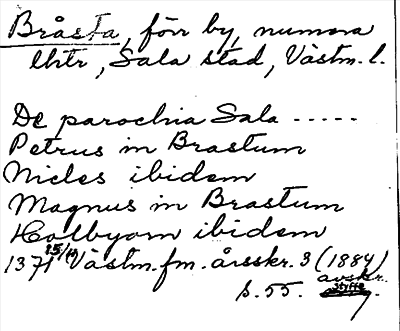 Bråsta, förr by, numera
lhtr, Sala stad, Västm. l.
De parochia Sala -----
Petrus in Brastum
Nicles ibidem
Magnus in Brastum
Holbyorn ibidem
1371 15/10 Västm. fm. årsskr. 3 (1884)
s. 55. avskr.
Styffe